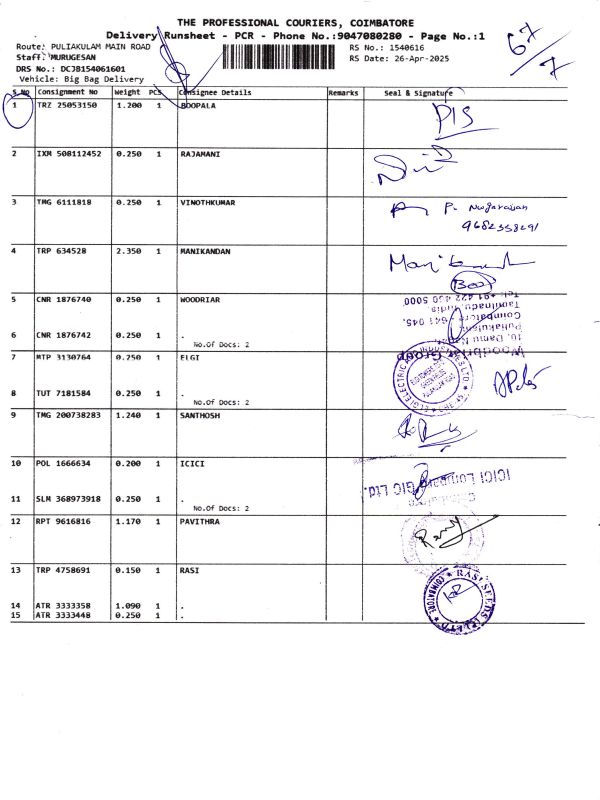 THE PROFESSIONAL COURIERS, COIMBATORE
Delivery Runsheet - PCR - Phone No.:9047080280 - Page No.:1
67/7
Route: PULIAKULAM MAIN ROAD RS No.: 1540616
Staff: MURUGESAN RS Date: 26-Apr-2025
DRS No.: DCJB154061601
Vehicle: Big Bag Delivery
S.No Consignment No Weight PCS Consignee Details Remarks Seal & Signature
1 TRZ 25053150 1.200 1 BOOPALA
2 IXM 508112452 0.250 1 RAJAMANI
3 TMG 6111818 0.250 1 VINOTHKUMAR
4 TRP 634528 2.350 1 MANIKANDAN
5 CNR 1876740 0.250 1 WOODRIAR
Tel: +91 422 430 5000.
Tamilnadu, India
Coimbatore - 641 045.
6 CNR 1876742 0.250 1 .
No.Of Docs: 2
Woodbriar Group
7 MTP 3130764 0.250 1 ELGI
8 TUT 7181584 0.250 1 .
No.Of Docs: 2
9 TMG 200738283 1.240 1 SANTHOSH
10 POL 1666634 0.200 1 ICICI
ICICI Lombard GIC Ltd.
11 SLM 368973918 0.250 1 .
No.Of Docs: 2
12 RPT 9616816 1.170 1 PAVITHRA
13 TRP 4758691 0.150 1 RASI
RASI SEEDS (P) LTD * COIMBATORE *
14 ATR 3333358 1.090 1 .
15 ATR 3333448 0.250 1 .